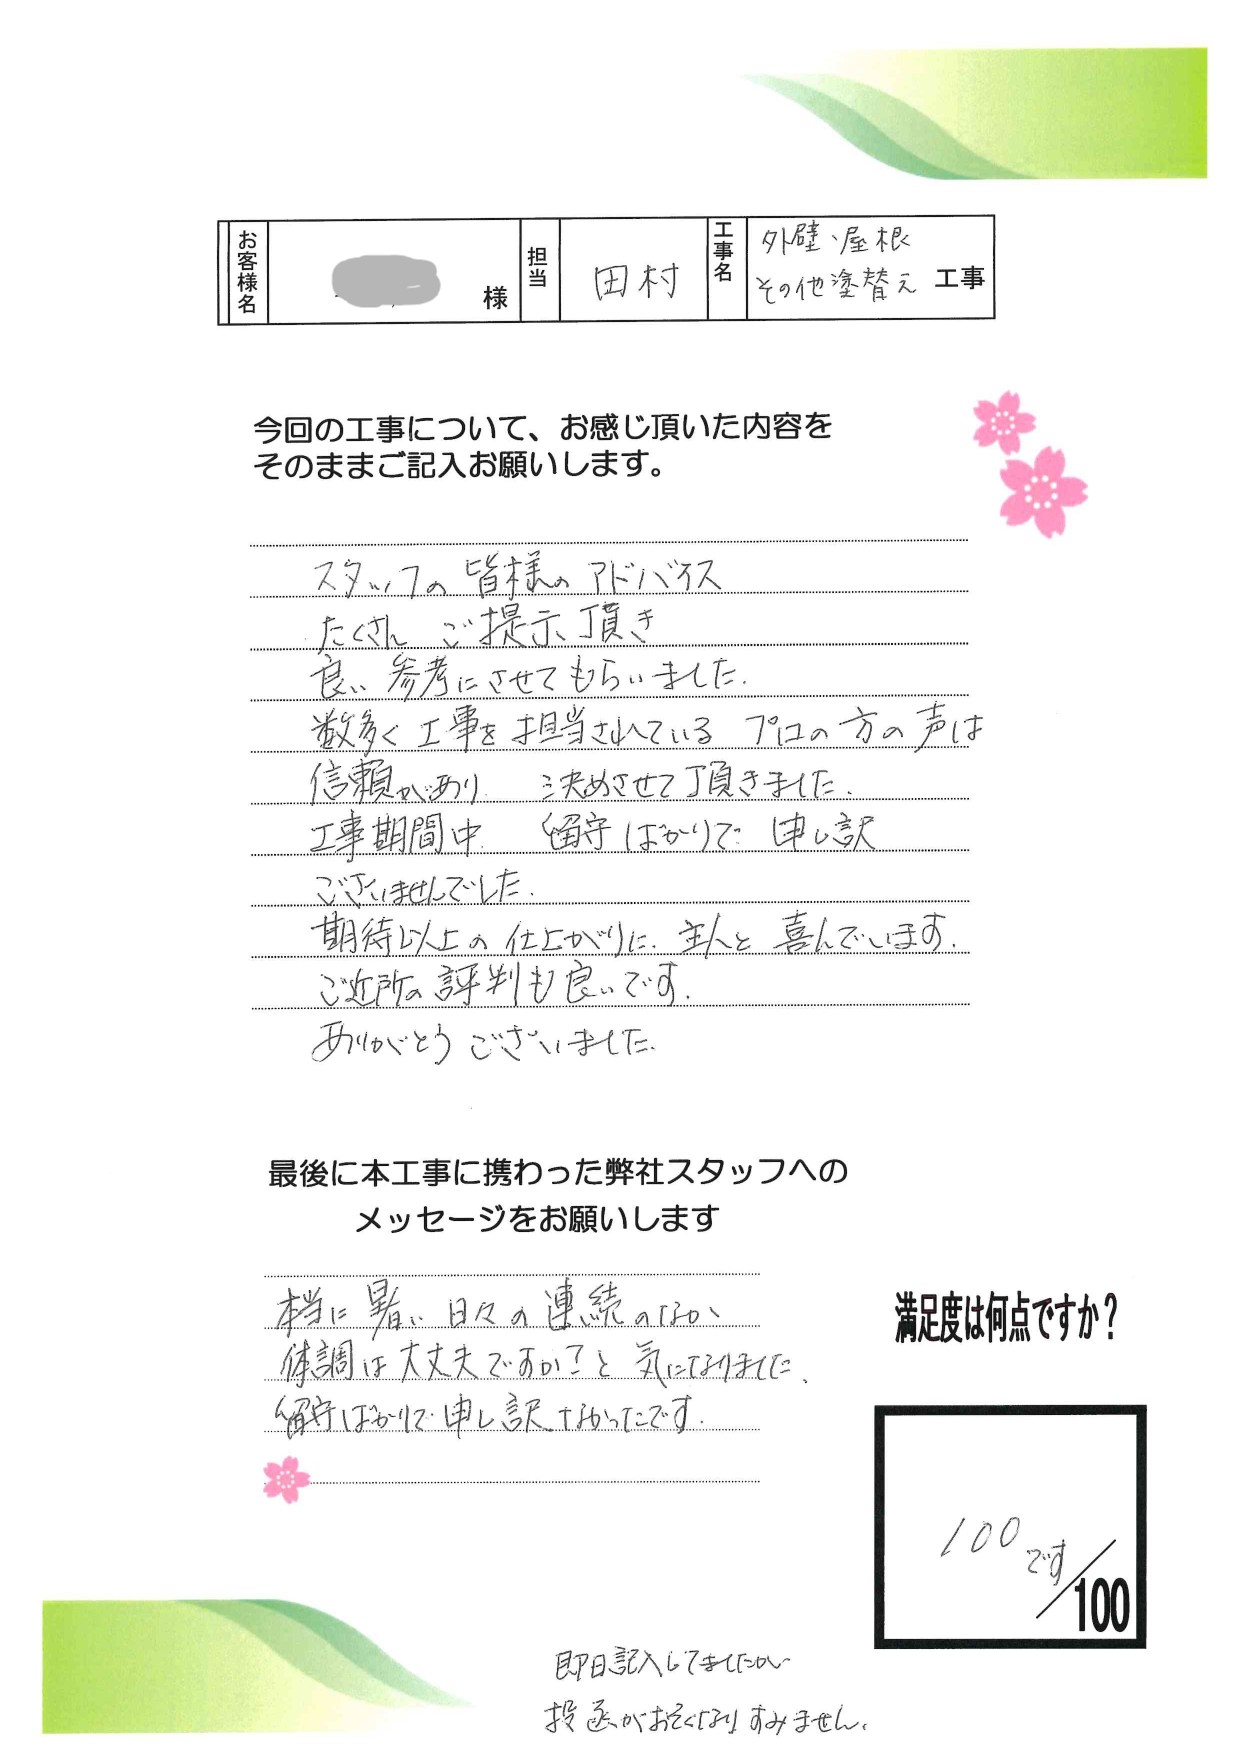 お客様名
様
担当
田村
工事名
外壁、屋根
その他塗替え 工事
今回の工事について、お感じ頂いた内容を
そのままご記入お願いします。
スタッフの 皆様の アドバイス
たくさん ご提示頂き
良い参考にさせてもらいました.
数多く工事を担当されている プロの方の声は
信頼があり 決めさせて頂きました.
工事期間中 留守ばかりで 申し訳
ございませんでした.
期待以上の仕上がりに 主人と 喜んでいます.
ご近所の評判も良いです.
ありがとう ございました.
最後に本工事に携わった弊社スタッフへの
メッセージをお願いします
本当に暑い日々の連続のなか、
体調は大丈夫ですか?と 気になりました、
留守ばかりで申し訳なかったです.
満足度は何点ですか?
100です/100
即日記入してましたが
投函がおそくなりすみません.